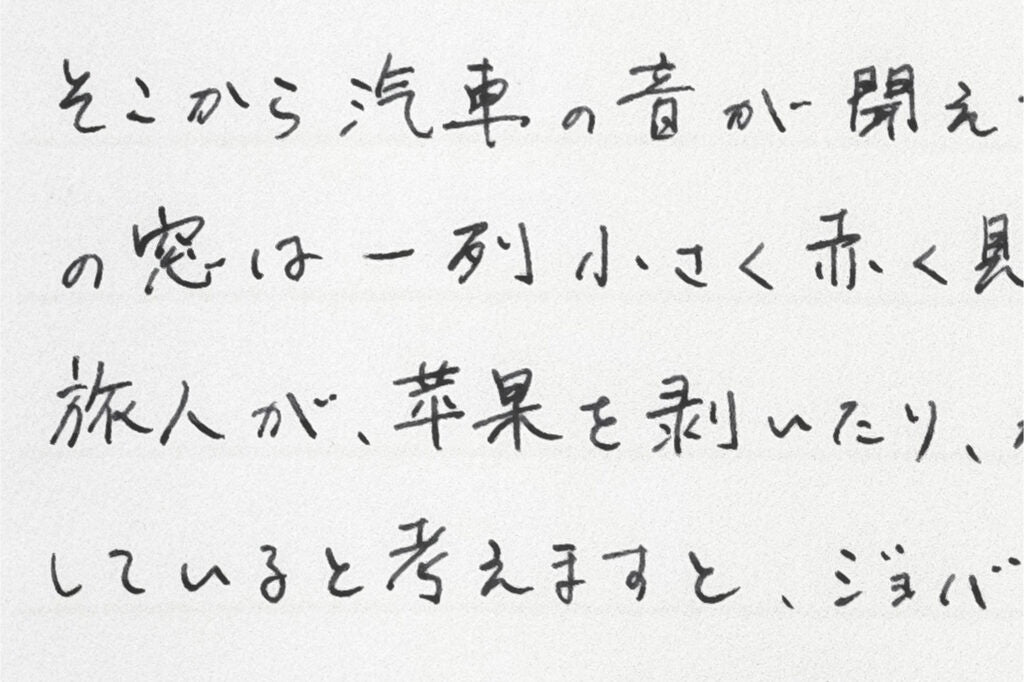 そこから汽車の音が聞え
の窓は一列小さく赤く見
旅人が、苹果を剥いたり、
していると考えますと、ジョバ